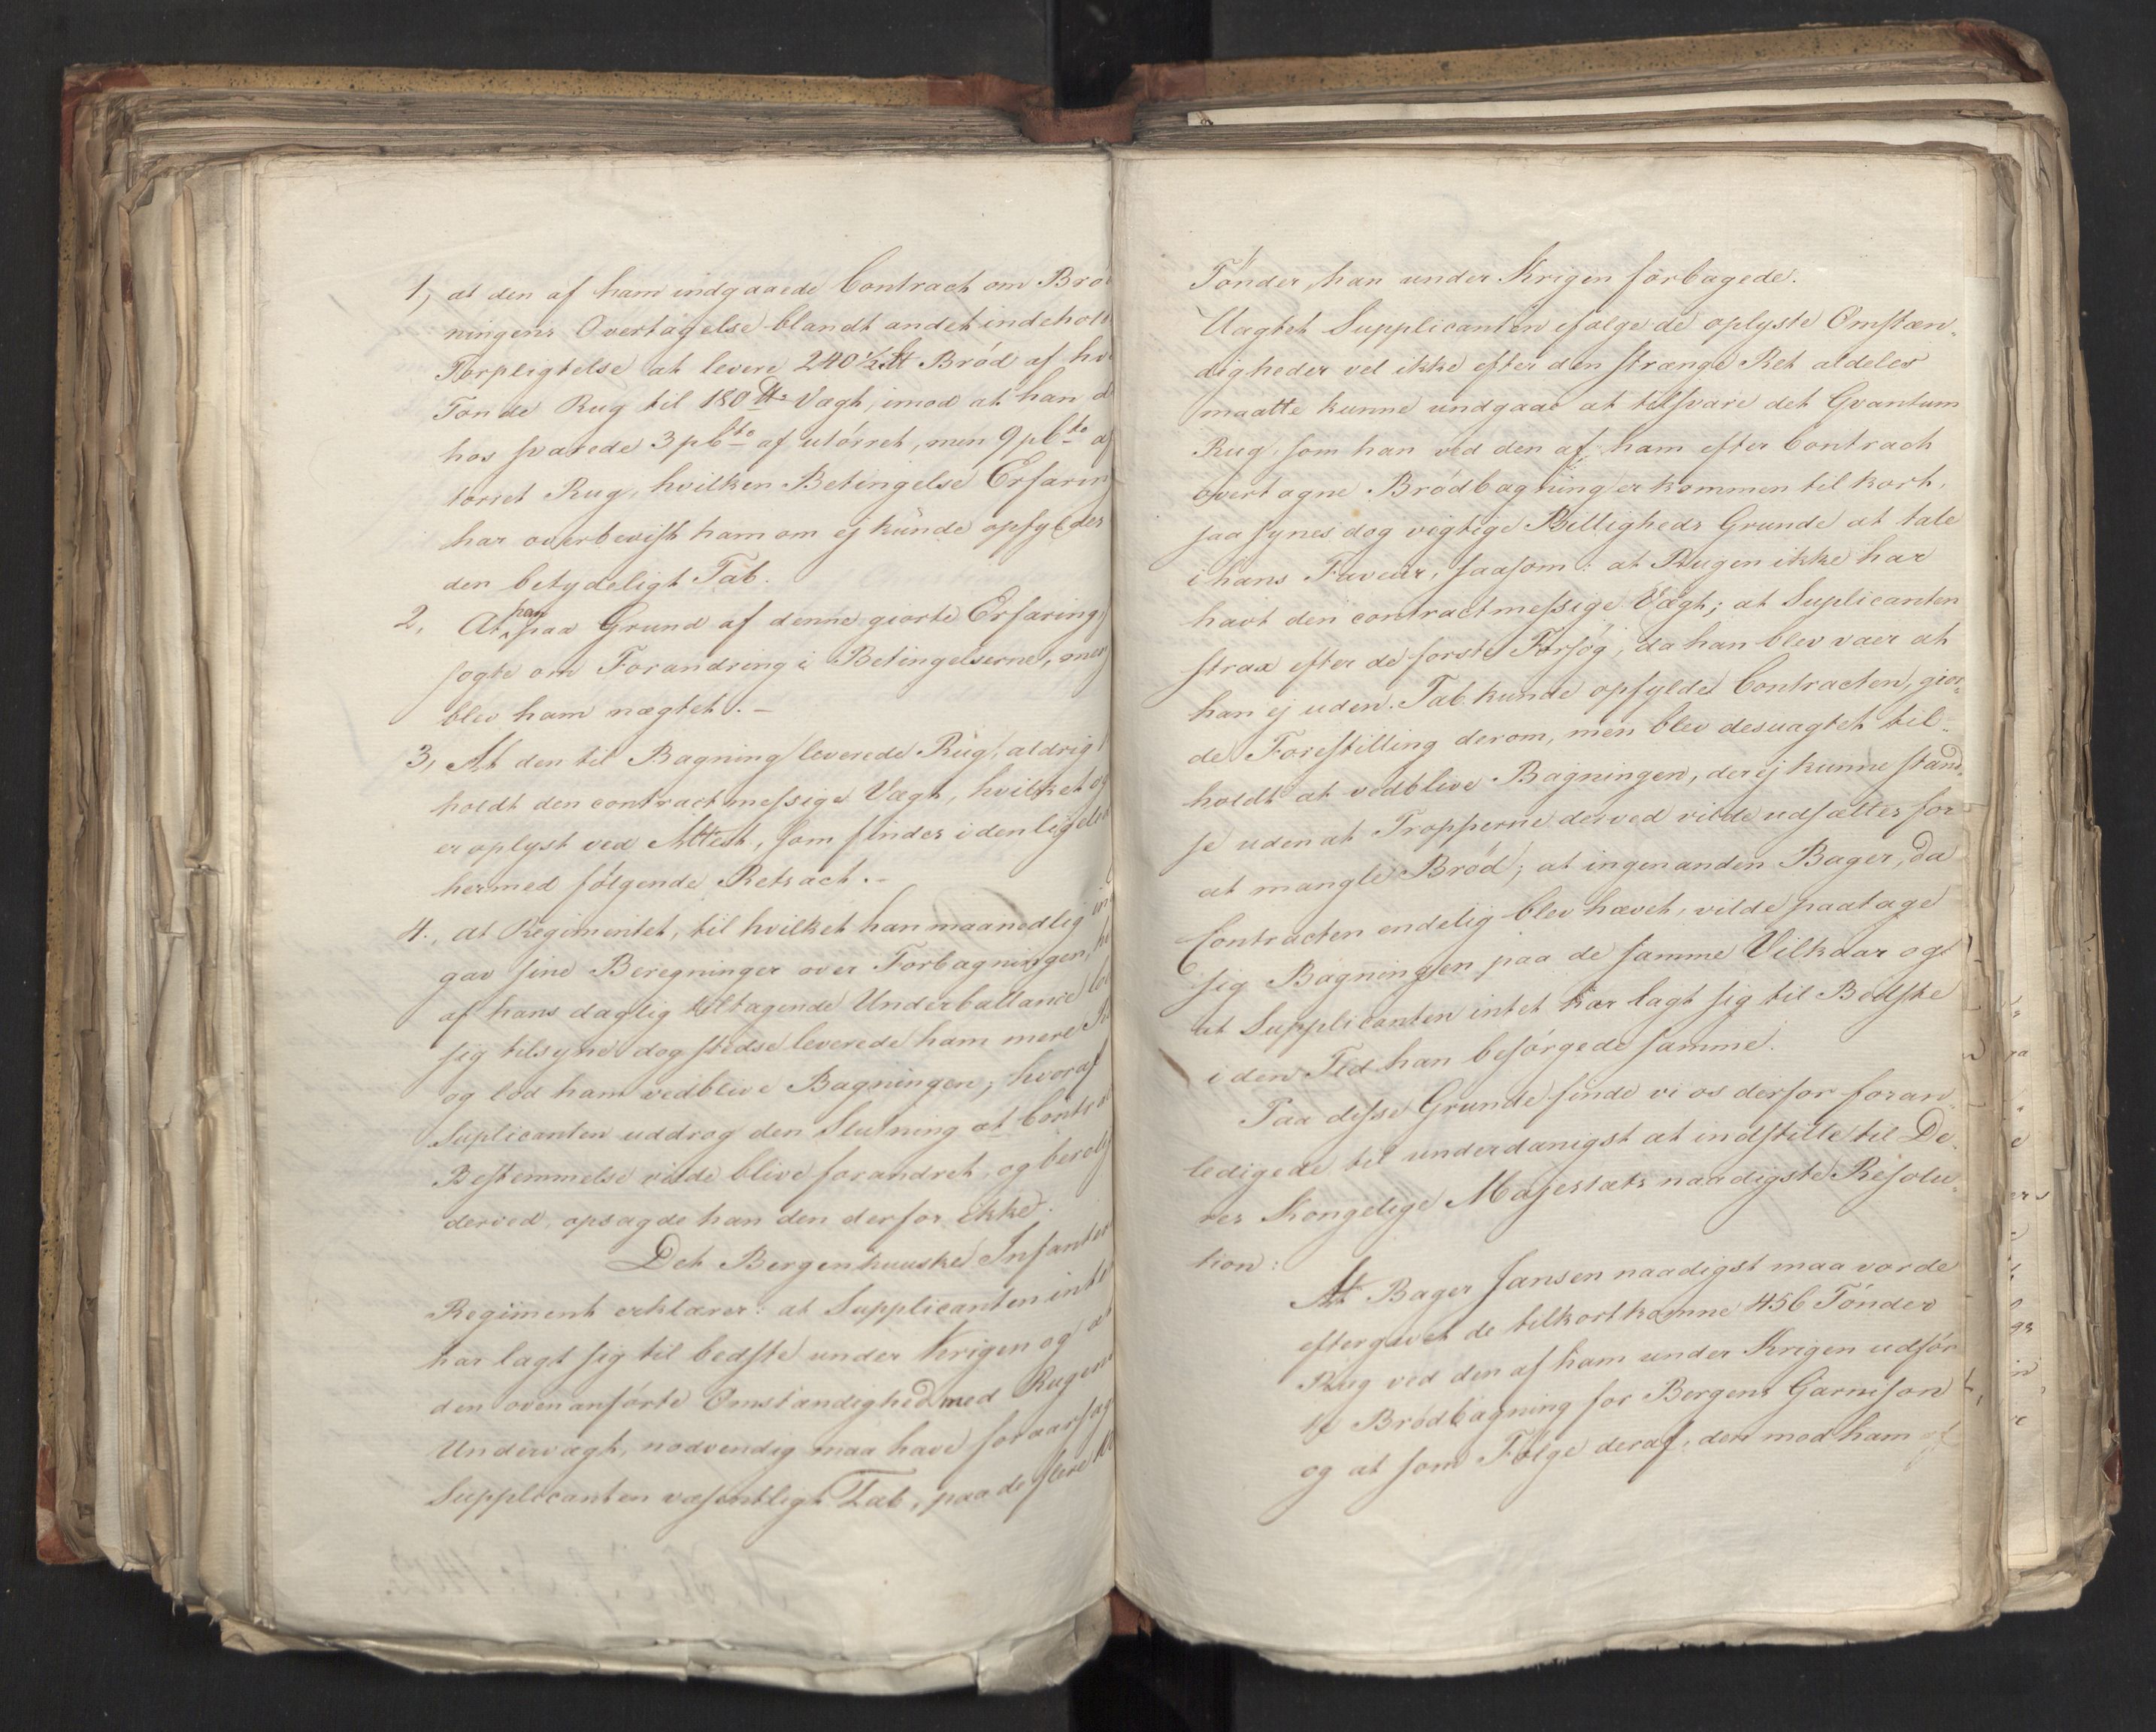 1, at den af ham indgaaede Contract om Brød
ningens Overtagelse blandt andet indehold
Forpligtelse at levere 240½ ℔ Brød af hv
Tønde Rug til 180 ℔ Vægt, imod at han d
hos svarede 3 pCto af utørret, men 9 pCto af
tørret Rug, hvilken Betingelse Erfaring
har overbevist ham om ej kunde opfyldes
den betydeligt Tab.
2, At han paa Grund af denne giorte Erfaring,
søgte om Forandring i Betingelserne, men
blev ham nægtet. –
3, At den til Bagning leverede Rug, aldrig
holdt den contractmessige Vægt, hvilket og
er oplyst ved Attest, som findes i den ligele
hermed følgende Retsact. –
4., at Regimentet, til hvilket han maanedlig in
gav sine Beregninger over Forbagningen, h
af hans daglig tiltagende Underballance lo
sig tilsyne dog stedse leverede ham mere R
og lod ham vedblive Bagningen; hvoraf
Suplicanten uddrog den Slutning at Contr
Bestemmelse vilde blive forandret, og berolig
derved, opsagde han den derfor ikke.
Det Bergenhuuske Infanter
Regiment erklærer: at Supplicanten intet
har lagt sig til bedste under Krigen og at
den ovenanførte Omstændighed med Rugens
Undervægt, nødvendig maa have foraarsag
Supplicanten væsentligt Tab, paa de flere
Tønder, han under Krigen forbagede.
Uagtet Supplicanten ifølge de oplyste Omstæn-
digheder vel ikke efter den strænge Ret aldeles
maatte kunne undgaae at tilsvare det Qvantum
Rug, som han ved den af ham efter Contract
overtagne Brødbagning er kommen til kort,
saa synes dog vigtige Billigheds Grunde at tale
i hans Faveur, saasom: at Rugen ikke har
havt den contractmessige Vægt; at Suplicanten
strax efter de første Forsøg, da han blev vaer at
han ej uden Tab kunde opfylde Contracten, gior-
de Forestilling derom, men blev desuagtet til-
holdt at vedblive Bagningen, der ej kunne stand-
se uden at Tropperne derved vilde udsættes for
at mangle Brød; at ingen anden Bager, da
Contracten endelig blev hævet, vilde paatage
sig Bagningen paa de samme Vilkaar og
at Supplicanten intet har lagt sig til Bedste
i den Tid han besørgede samme.
Paa disse Grunde finde vi os derfor foran-
ledigede til underdanigst at indstille til De-
res Kongelige Majestæts naadigste Resolu-
tion:
At Bager Jansen naadigst maa vorde
eftergivet de tilkortkomne 456 Tønder
Rug ved den af ham under Krigen udfør-
te Brødbagning for Bergens Garnison
og at som Følge deraf, den mod ham af